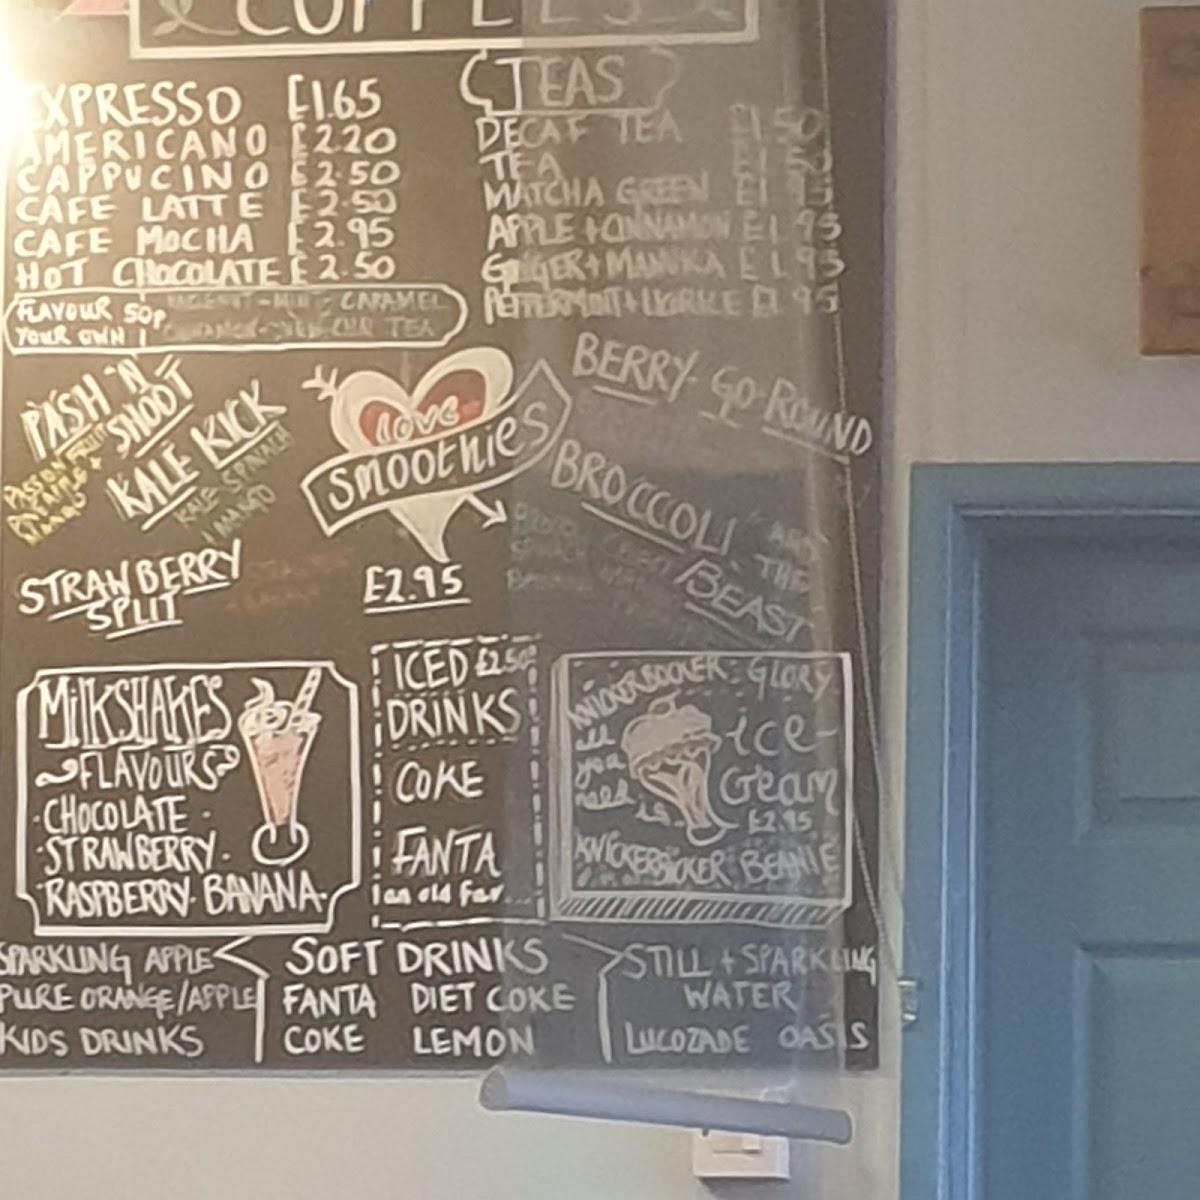 COFFEES
EXPRESSO £1.65
AMERICANO £2.20
CAPPUCINO £2.50
CAFE LATTE £2.50
CAFE MOCHA £2.95
HOT CHOCOLATE £2.50
FLAVOUR 50p CARAMEL
YOUR OWN! TEA
TEAS
DECAF TEA £1.50
TEA £1.50
MATCHA GREEN £1.95
APPLE + CINNAMON £1.95
GINGER + MANUKA £1.95
PEPPERMINT + LICORICE £1.95
PASH 'N
SHOOT
PASSION FRUIT
PINEAPPLE +
MANGO
KALE KICK
KALE SPINACH
+ MANGO
STRAWBERRY
SPLIT
LOVE
SMOOTHIES
£2.95
BERRY-GO-ROUND
BROCCOLI AND
THE
BEAST
MILKSHAKES
FLAVOURS
·CHOCOLATE·
·STRAWBERRY·
RASPBERRY· BANANA·
ICED £2.50
DRINKS
COKE
FANTA
an old fav...
KNICKERBOCKER: GLORY
all you need is
ice-
cream
£2.95
KNICKERBOCKER BEANIE
SPARKLING APPLE
PURE ORANGE/APPLE
KIDS DRINKS
SOFT DRINKS
FANTA DIET COKE
COKE LEMON
STILL + SPARKLING
WATER
LUCOZADE OASIS